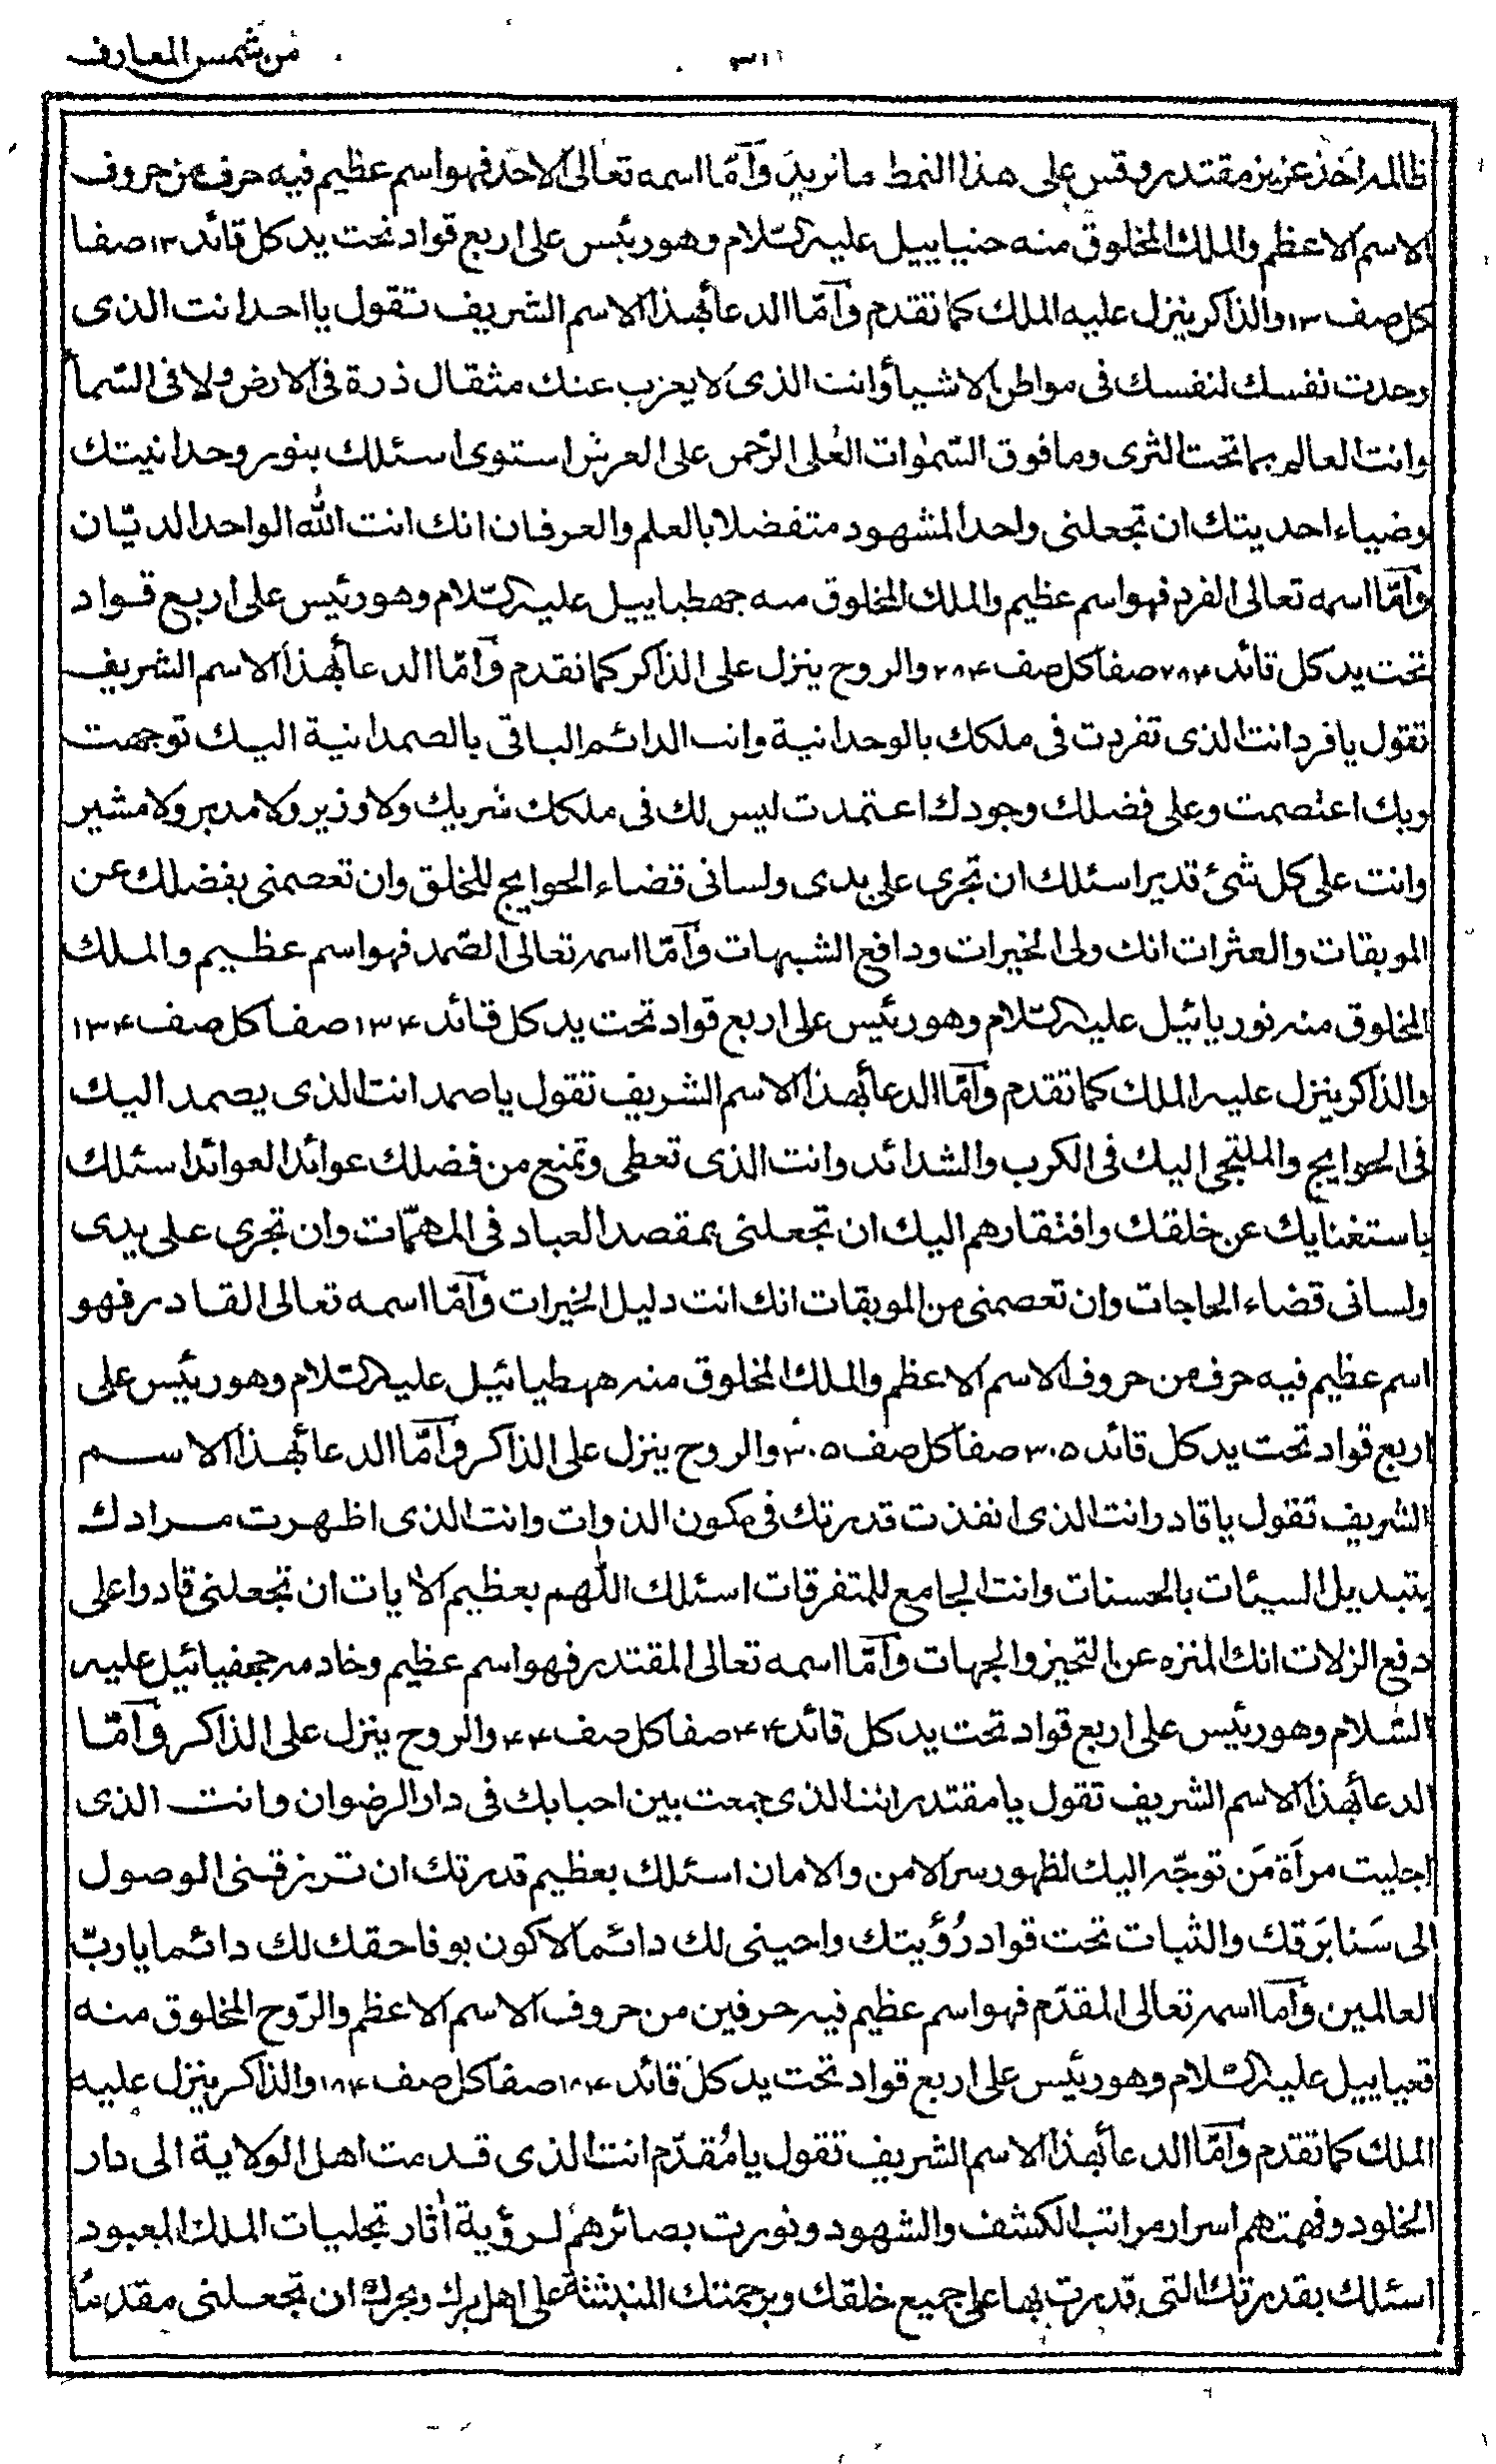 من شمس المعارف
٣١١
ظالمه اخذ عزيز مقتدر وقس على هذا النمط ما نريد وَآمّا اسمه تعالى الاحد فهو اسم عظيم فيه حرف من حروف
الاسم الاعظم والملك المخلوق منه حنياييل عليه السّلام وهو رئيس على اربع قواد تحت يد كل قائد ١٣ صفا
كل صف ١٣ والذاكر ينزل عليه الملك كما تقدم وَآمّا الدعأ بهذا الاسم الشريف تقول يا احد انت الذى
وحدت نفسك لنفسك فى مواطن الاشيأ وانت الذى لا يعزب عنك مثقال ذرة فى الارض ولا فى السّمأ
وانت العالم بما تحت الثرى وما فوق السّمٰوات العُلى الرّحمن على العرش استوى اسئلك بنور وحدانيتك
وضياء احديتك ان تجعلنى واحد المشهود متفضلا بالعلم والعرفان انك انت الله الواحد الديّان
وَآمّا اسمه تعالى الفرد فهو اسم عظيم والملك المخلوق منه جهطباييل عليه السّلام وهو رئيس على اربع قواد
تحت يد كل قائد ٢٨٤ صفا كل صف ٢٨٤ والروح ينزل على الذاكر كما تقدم وَآمّا الدعأ بهذا الاسم الشريف
تقول يا فرد انت الذى تفردت فى ملكك بالوحدانية وانت الدائم الباقى بالصمدانية اليك توجهت
وبك اعتصمت وعلى فضلك وجودك اعتمدت ليس لك فى ملكك شريك ولا وزير ولا مدبر ولا مشير
وانت على كل شئ قدير اسئلك ان تجرى على يدى ولسانى قضاء الحوايج للخلق وان تعصمنى بفضلك عن
الموبقات والعثرات انك ولى الخيرات ودافع الشبهات وَآمّا اسمه تعالى الصّمد فهو اسم عظيم والملك
المخلوق منه نوريائيل عليه السّلام وهو رئيس على اربع قواد تحت يد كل قائد ١٣٤ صفا كل صف ١٣٤
والذاكر ينزل عليه الملك كما تقدم وَآمّا الدعأ بهذا الاسم الشريف تقول يا صمد انت الذى يصمد اليك
فى الحوايج والملتجى اليك فى الكرب والشدائد وانت الذى تعطى وتمنع من فضلك عوائد العوائد اسئلك
باستغنايك عن خلقك وافتقارهم اليك ان تجعلنى بمقصد العباد فى المهمّات وان تجرى على يدى
ولسانى قضاء الحاجات وان تعصمنى من الموبقات انك انت دليل الخيرات وَآمّا اسمه تعالى القادر فهو
اسم عظيم فيه حرف من حروف الاسم الاعظم والملك المخلوق منه هبطيائيل عليه السّلام وهو رئيس على
اربع قواد تحت يد كل قائد ٣٠٥ صفا كل صف ٣٠٥ والروح ينزل على الذاكر وَآمّا الدعأ بهذا الاسم
الشريف تقول يا قادر انت الذى انفذت قدرتك فى مكون الذوات وانت الذى اظهرت مرادك
بتبديل السيئات بالحسنات وانت الجامع للمتفرقات اسئلك اللهم بعظيم الآيات ان تجعلنى قادرا على
دفع الزلات انك المنزه عن التحيز والجهات وَآمّا اسمه تعالى المقتدر فهو اسم عظيم وخادمه جمعفيائيل عليه
السّلام وهو رئيس على اربع قواد تحت يد كل قائد ٤٤ صفا كل صف ٤٤ والروح ينزل على الذاكر وَآمّا
الدعأ بهذا الاسم الشريف تقول يا مقتدر انت الذى جمعت بين احبابك فى دار الرضوان وانت الذى
اجليت مرآة مَن توجّه اليك لظهور سر الامن والامان اسئلك بعظيم قدرتك ان ترزقنى الوصول
الى سَنا بَرَقك والثبات تحت قواد رُؤيتك واحينى لك دائما لاكون بوفا حقك لك دائما يا ربّ
العالمين وَآما اسمه تعالى المقدّم فهو اسم عظيم فيه حرفين من حروف الاسم الاعظم والرّوح المخلوق منه
قعياييل عليه السّلام وهو رئيس على اربع قواد تحت يد كل قائد ١٨٤ صفا كل صف ١٨٤ والذاكر ينزل عليه
الملك كما تقدم وَآمّا الدعأ بهذا الاسم الشريف تقول يا مُقدّم انت الذى قدمت اهل الولاية الى دار
الخلود وفهمتهم اسرار مراتب الكشف والشهود ونورت بصائرهم لرؤية اٰثار تجليات الملك المعبود
اسئلك بقدرتك التى قدرت بها على جميع خلقك وبرحمتك المنبثثة على اهل برك وبحرك ان تجعلنى مقدما